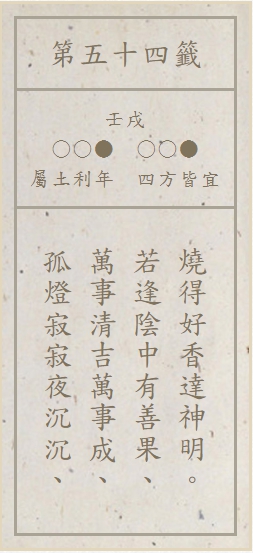 第五十四籤
壬戌
○○● ○○●
屬土利年 四方皆宜
孤燈寂寂夜沉沉、
萬事清吉萬事成、
若逢陰中有善果、
燒得好香達神明。